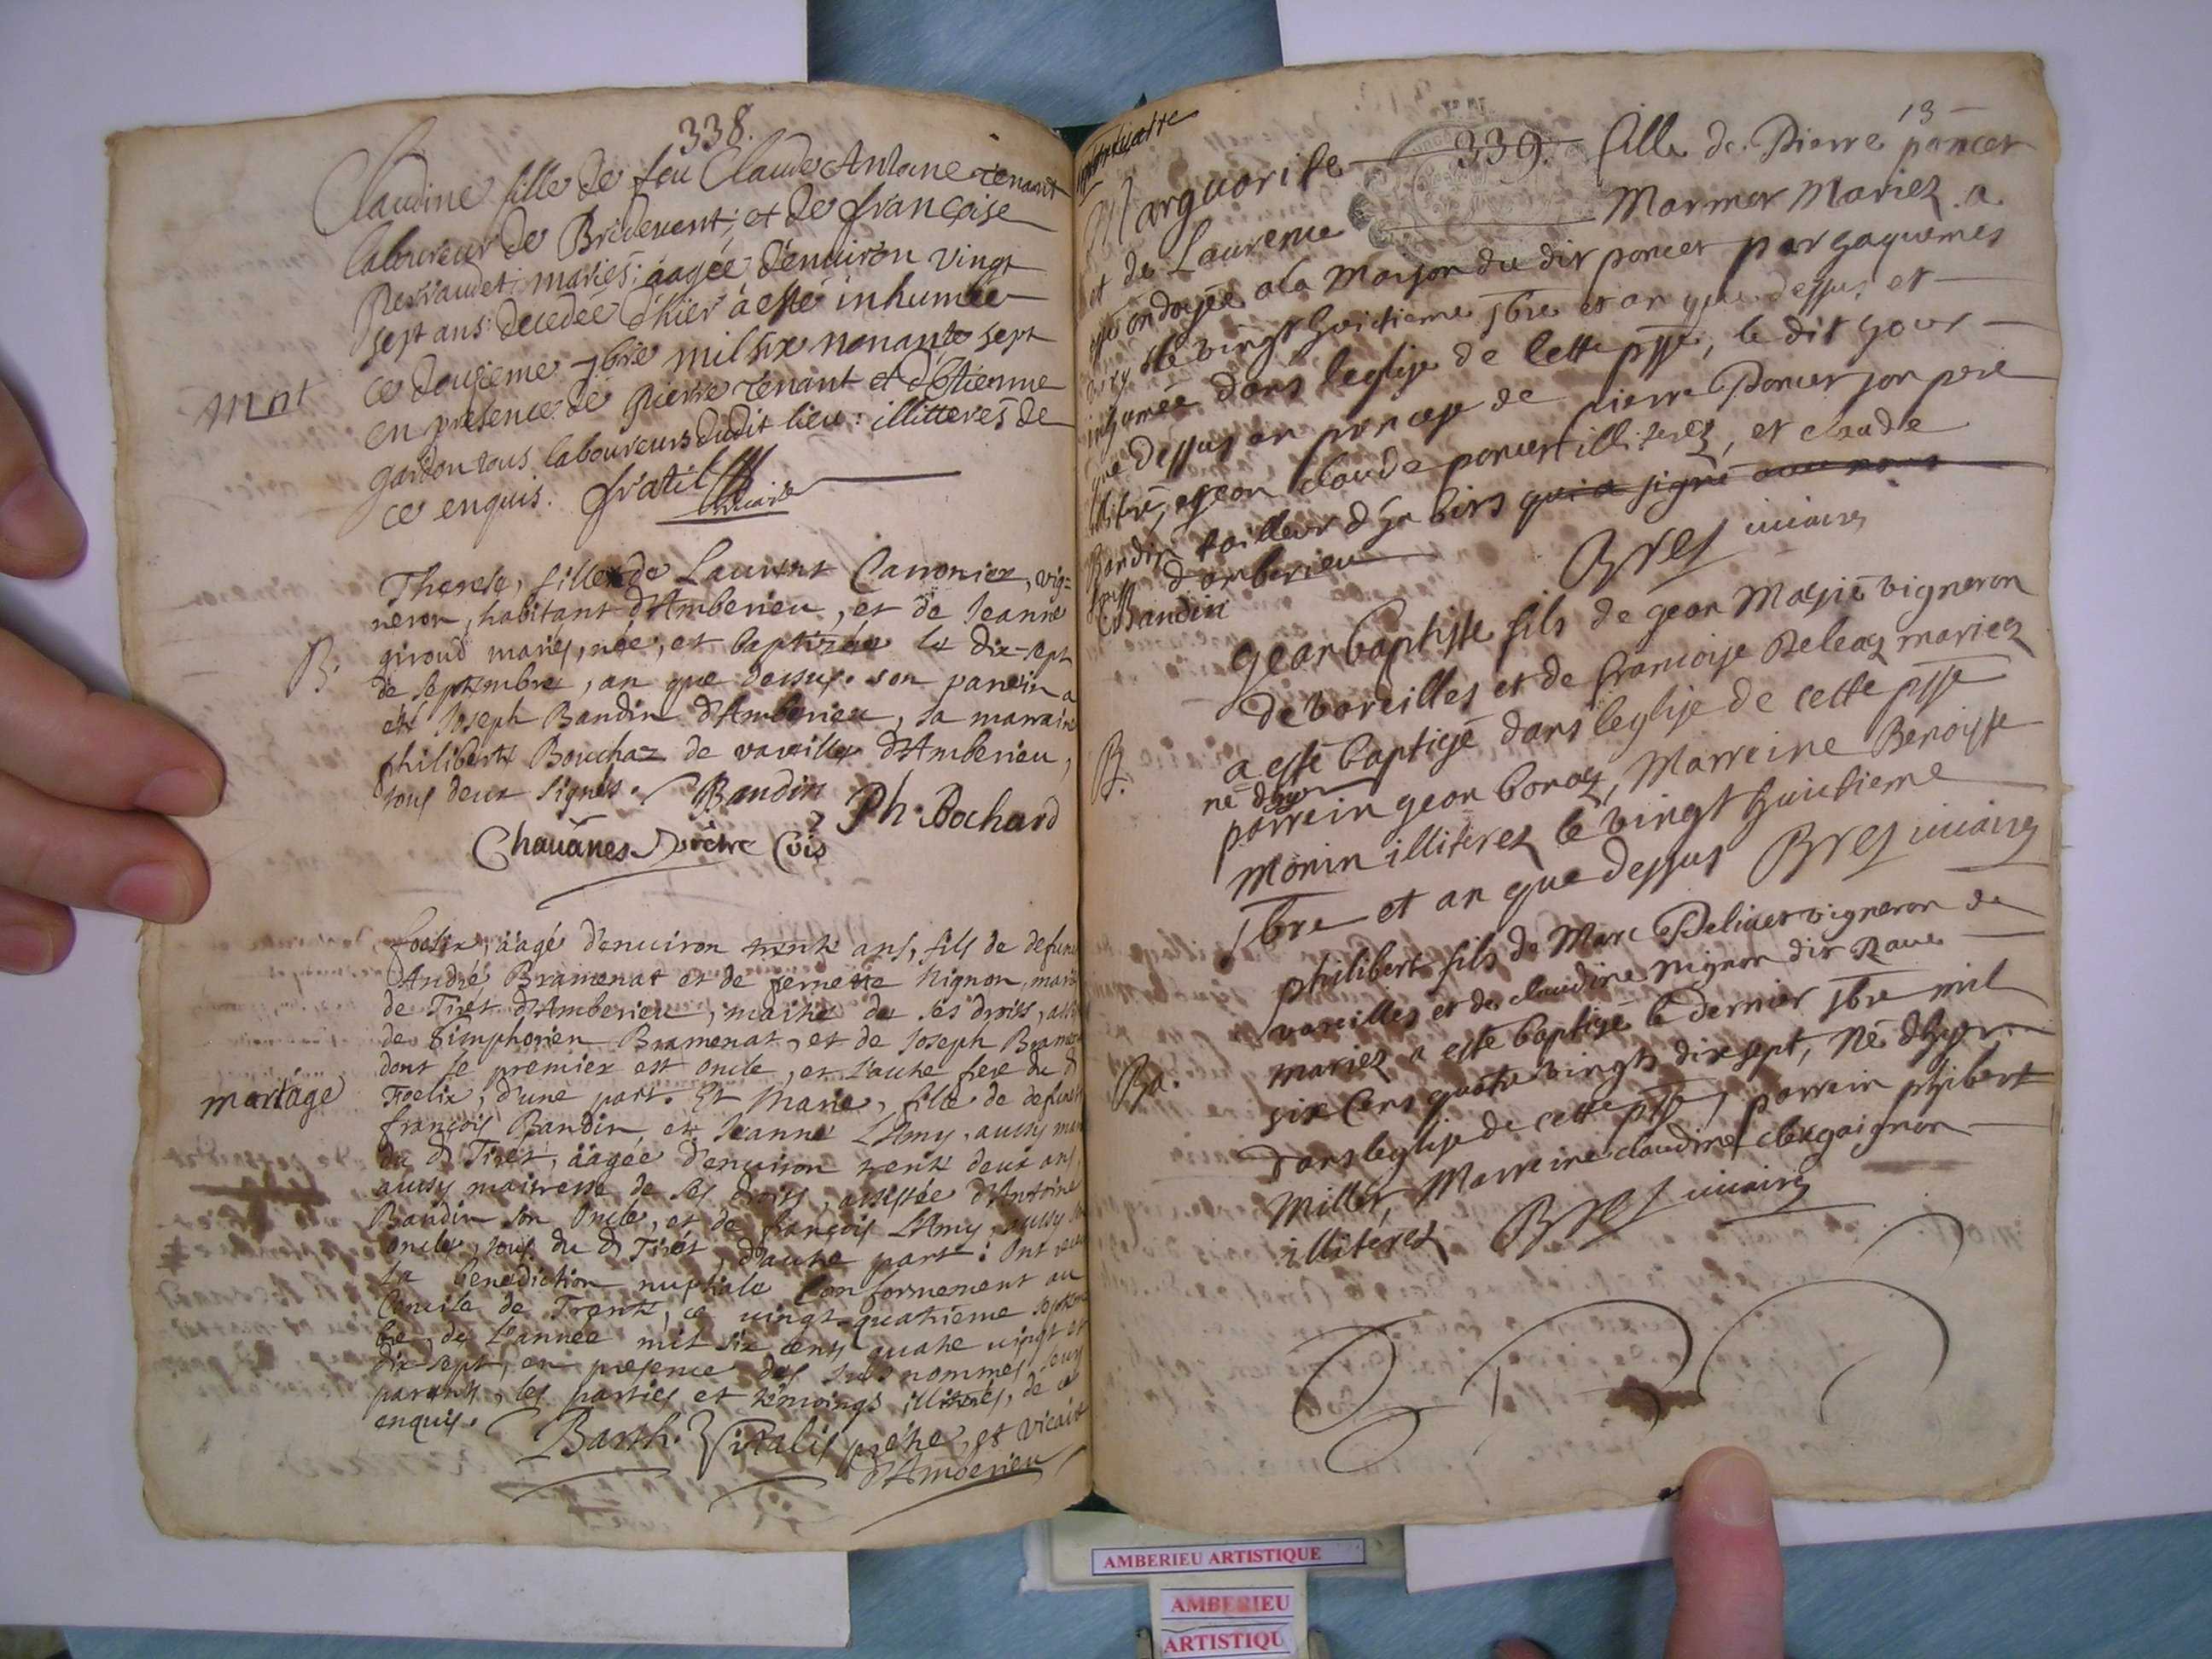 338.
Claudine fille de feu Claude Antoine Tenant
laboureur de Bredevent; et de françoise
Perraudet: mariés: aagée d'enuiron vingt
sept ans: decedée d'hier à esté inhumée
ce douzieme 7bre mil six nonante sept
Mort
en presence de Pierre Tenant et d'Etienne
gardon tous laboureurs dudit lieu: illitterés de
ce enquis.
Therese, fille de Laurent Carronier, vig-
neron, habitant d'Amberieu, et de Jeanne
giroud mariés, née, et baptizée le dix-sept
B.
de septembre, an que dessus. son parrin a
esté Joseph Bandin d'Amberieu, sa marraine
philiberte Bouchaz de vareilles d'Amberieu,
tous deux signés. Bandin Ph. Bochard
Chauanes
foelix, aagé d'enuiron trente ans, fils de defunt
André Bramenat et de pernette Nignon, mariés
de Tiret d'Amberieu, maitre de ses droits,
de Simphorien Bramenat, et de Joseph
dont le premier est oncle, et l'autre frere du d
mariage
Foelix, d'une part. Et Marie, fille de defunt
françois Bandin et Jeanne L'Amy, aussy
du d Tiret, aagée d'enuiron trente deux ans,
aussy maitresse de ses droits, assistée d'Antoine
Bandin son oncle, et de françois L'Amy, aussy
oncle, tous du d Tiret, d'autre part: Ont
la benediction nuptiale conformement au
Concile de Trente, ce vingt-quatrieme
bre, de l'année mil six cents quatre vingt et
dix-sept, en presence des sus nommes,
parents, les parties et témoings illiterés, de ce
enquis. Barth. Vitalis prêtre, et vicaire
d'Amberieu
339.
13
Marguerite fille de Pierre poncet
et de Laurence Mormor Mariez a
esté ondoyée a la Maison du dit poncet par
le vingt huictieme 7bre et an que dessus et
inhumée dans leglise de cette psse, le dit jour
que dessus en presence de pierre Poncet son pere
illitere, et jean claude poncet illiterez, et claude
Bandin tailleur d'habits qui a signé auec nous
d'amberieu
CBandin Bres uicaire
gean baptiste fils de gean vigneron
de vareilles et de francoise Beleaz mariez
B.
a esté baptizé dans leglise de cette psse
né dhyer
parrein gean bonaz, Marreine Benoiste
Monin illiterez le vingt huictieme
7bre et an que dessus Bres uicaire
philibert fils de Marc Beliuet vigneron de
vareilles et de claudine Nignon dit Raue
mariez a esté baptizé le dernier 7bre mil
Ba.
six cens quatre vingts dix sept, Né dhyer
dans leglise de cette psse, parrein philibert
Millet, Marreine claudine
illiterez Bres uicaire
AMBERIEU ARTISTIQUE
AMBERIEU
ARTISTIQU